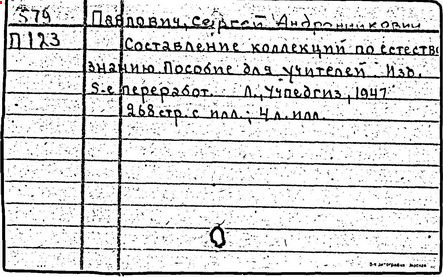 579 Павлович, Сергей Андроникович
П123 Составление коллекций по естество
знанию. Пособие для учителей. Изд.
5-е переработ. Л., Учпедгиз, 1947
268 стр. с илл.; 4 л. илл.